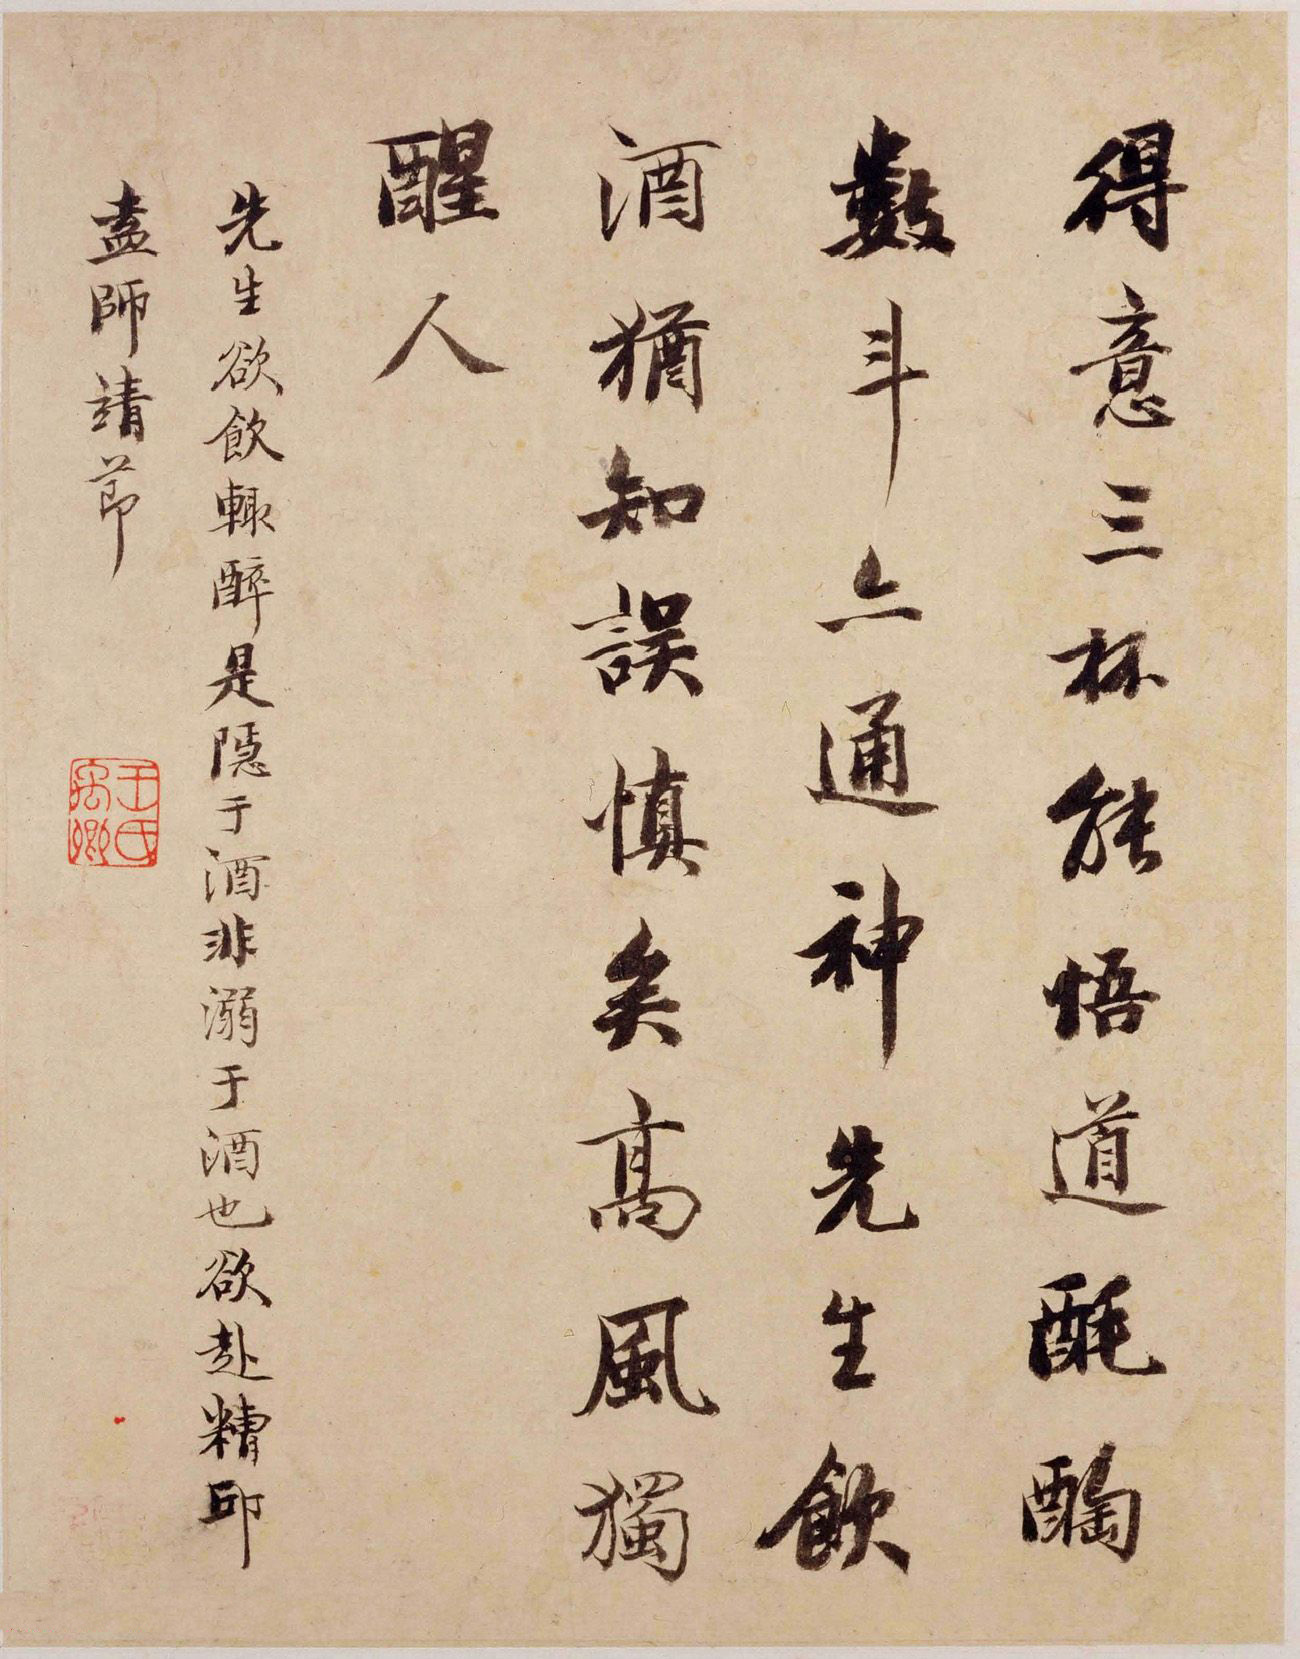 得意三杯能悟道酕醄
數斗亦通神先生飲
酒猶知誤慎矣高風獨
醒人
先生欲飲輒醉是隱于酒非溺于酒也欲赴糟邱
盍師靖節
王氏